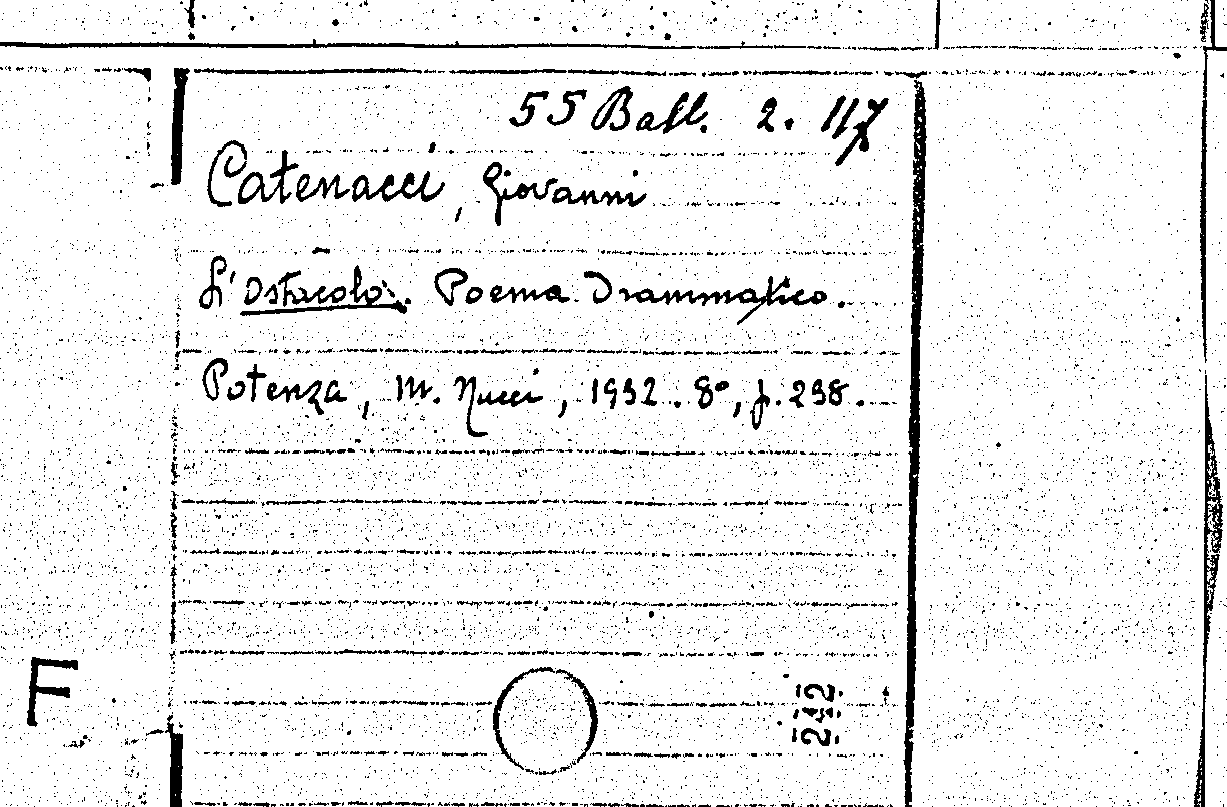 55 Ball. 2. 117
Catenacci, Giovanni
L'Ostacolo. Poema Drammatico.
Potenza, M. Nucci, 1932. 8°, p. 238.
F
242